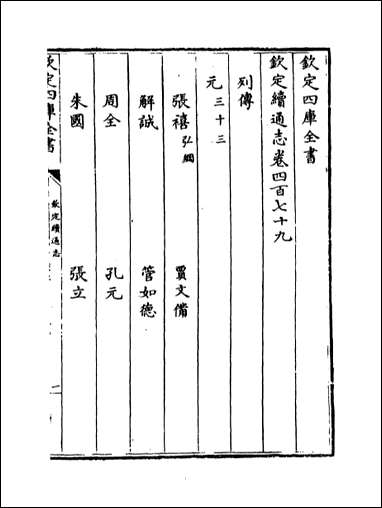 欽定四庫全書
欽定續通志卷四百七十九
列傳
元三十三
張禧弘綱 賈文備
解誠 管如德
周全 孔元
朱國 張立
欽定四庫全書
欽定續通志